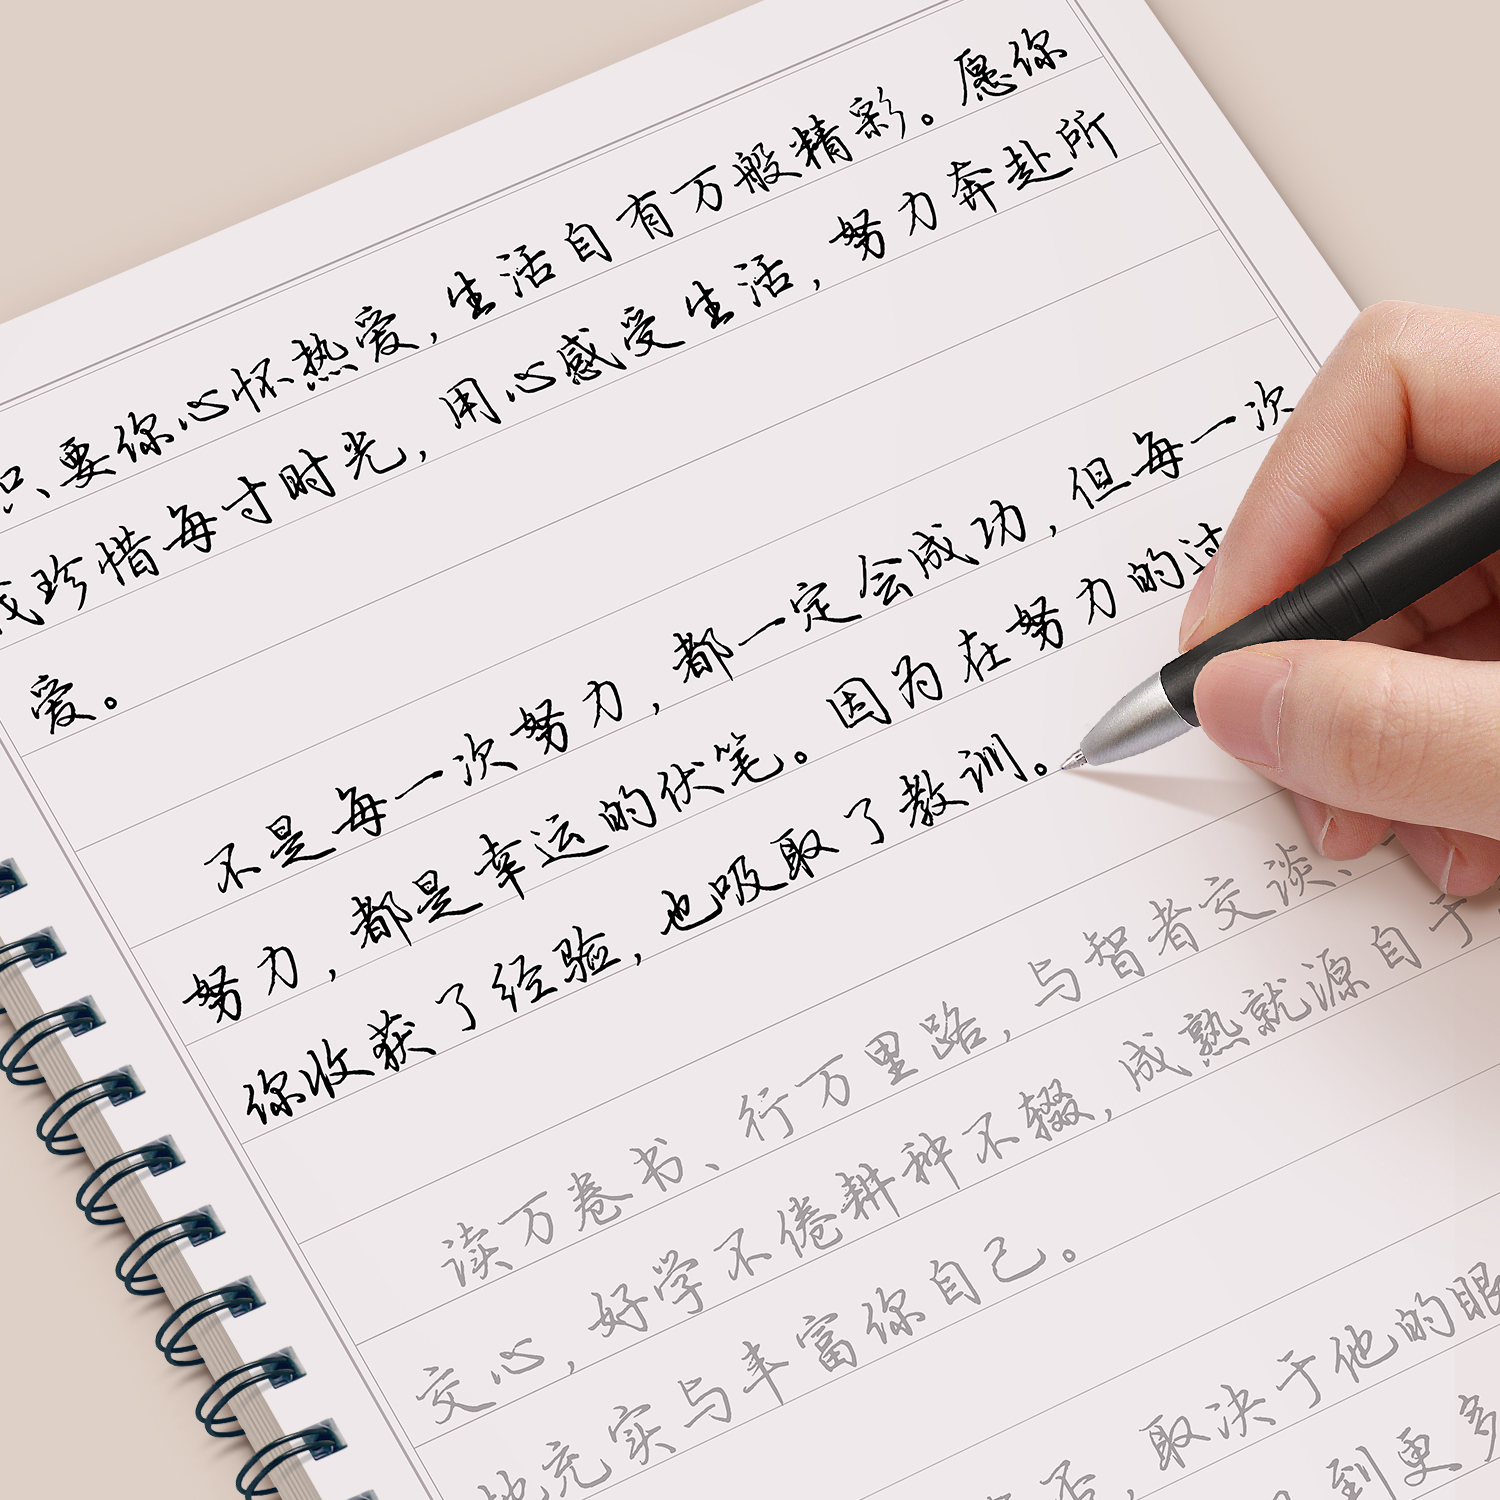 只要你心怀热爱，生活自有万般精彩。愿你
我珍惜每寸时光，用心感受生活，努力奔赴所
爱。
不是每一次努力，都一定会成功，但每一次
努力，都是幸运的伏笔。因为在努力的过
你收获了经验，也吸取了教训。
读万卷书、行万里路，与智者交谈、
交心，好学不倦耕种不辍，成熟就源自于
地充实与丰富你自己。
否，取决于他的眼
到更多